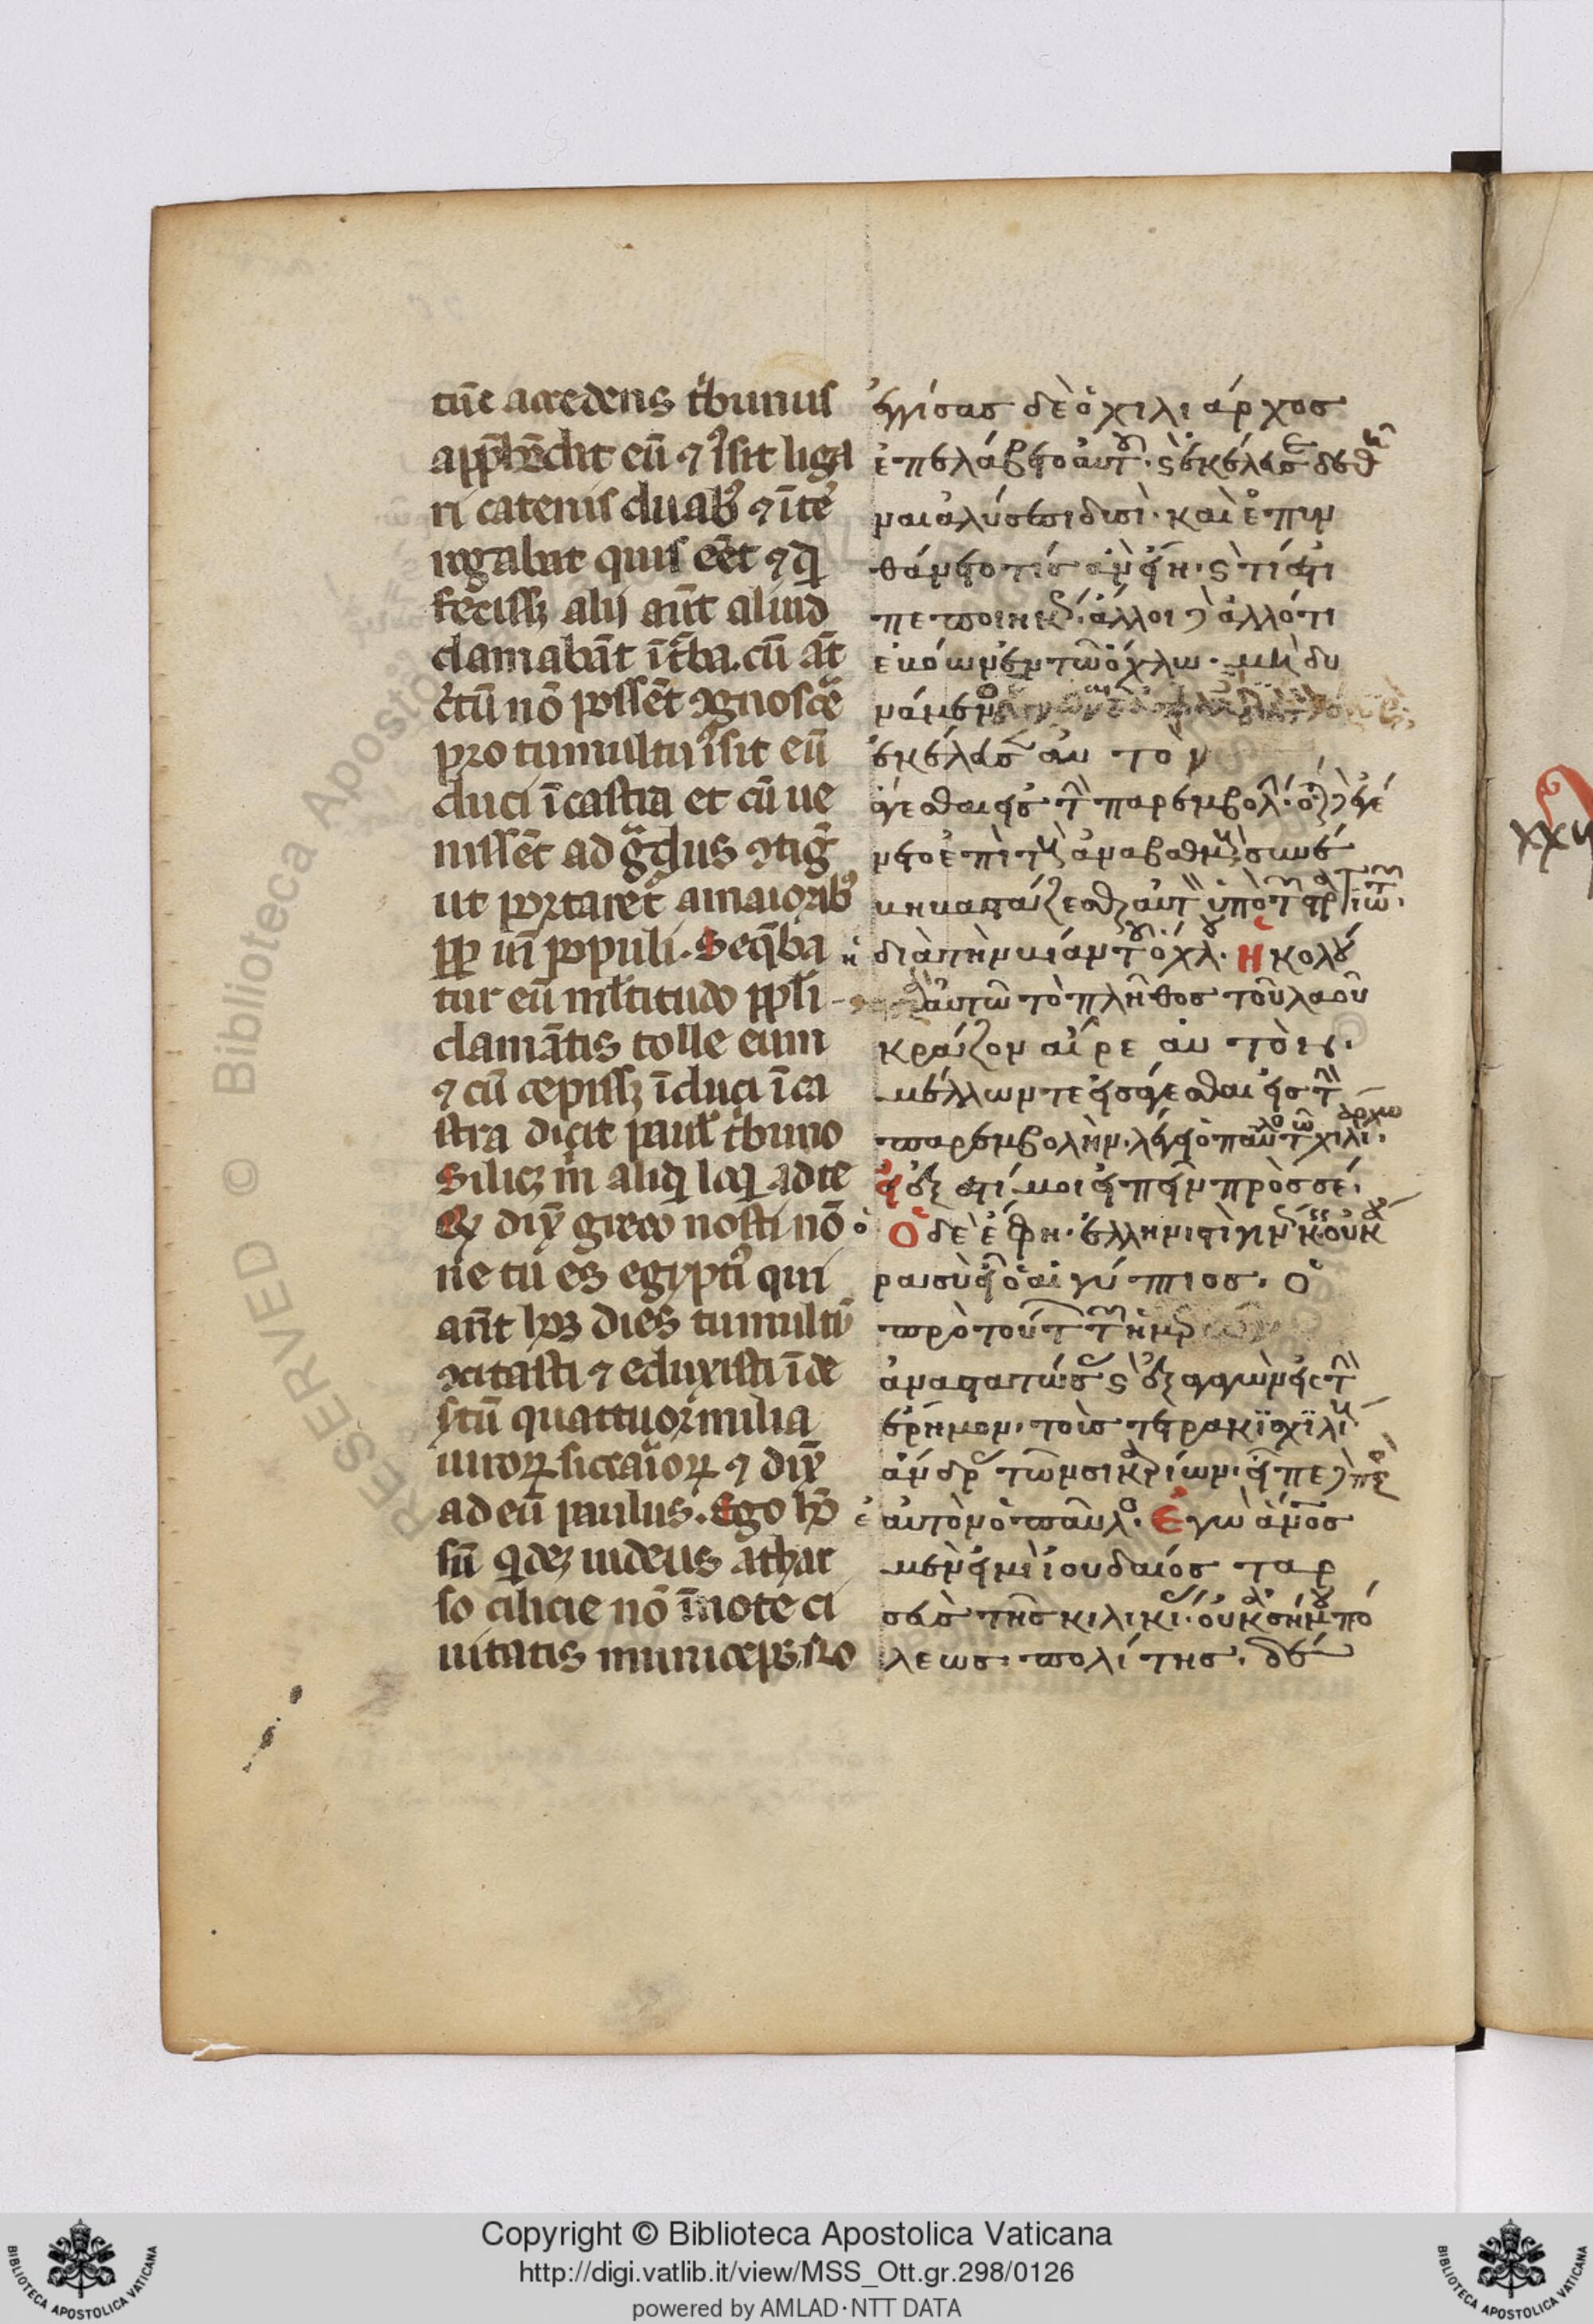 tūc accedens t͛bunus
app̄hēdit eū ⁊ iͣsit liga
ri catenis duabꝰ ⁊ īte͛
rogabat quis eēt ⁊ qͥd
fecissꝫ alij aūt aliud
clamabāt ī t͛ba. cū aūt
c͛tū nō possēt ꝯgnosce͛
pro tumultu iͣsit eū
duci ī castra et cū ue
nissēt ad gͣdus ꝯtigͥ
ut portaret͛ a maioribꝰ
ꝓp uī populi. Seqͤba
tur eū ml̄titudo ppl̄i
clamātis tolle eum
⁊ cū cepissꝫ īduci ī ca
stra dicit paul͛ t͛buno
Si licꝫ m̄ aliqͥd loqͥ ad te
Qͥ dix̄ greco nosti nō
ne tu es egyptꝰ qui
añt hos dies tumultū
ꝯcitasti ⁊ eduxisti ī de
s͛tū quattuor milia
uiroꝝ siccarioꝝ ⁊ dix̄
ad eū paulus. Ego ho
sū qͥdeꝫ iudeus a thar
so cilicie nō īnote ci
uitatis municeps. ro
ἐγγίσας δὲ ὁ χιλιάρχος
ἐπελάβετο αυτοῦ. ϛ ἐκέλευσε δεθῆ
ναι ἁλύσεσι δυσὶ. καὶ ἐπυν
θάνετο τίς ἀν εἴη. ϛ τί ἐστι
πεποιηκώς. ἄλλοι δὲ ἀλλό τι
ἐβόων ἐν τῶ ὄχλω. μὴ δυ
νάμενος
ἐκέλευσεν αυτον
ἄγεσθαι εἰς τὴν παρεμβολήν. ὅτε δὲ ἐγέ
νετο ἐπὶ τοὺς ἀναβαθμούς. συνέ
βη βαστάζεσθαι αὐτὸν ὑπὸ τῶν στρατιωτῶν.
διὰ τὴν βίαν τοῦ ὄχλου. Ἠκολού
αυτῶ τὸ πλῆθος τοῦ λαοῦ
κράζον αἶρε αυτὸν.
μέλλων τε εἰσάγεσθαι εἰς τὴν
παρεμβολὴν. λέγει ὁ παῦλος τῶ χιλιάρχω.
εἰ ἔξεστί μοι εἰπεῖν πρὸς σέ.
Ὁ δὲ ἔφη. ἑλληνιστὶ γινώσκεις. οὐκ ἄ
ρα σὺ εἶ ὁ αἰγύπτιος. ὁ
πρὸ τούτων τῶν ἡμερῶν
ἀναστατώσας ϛ ἐξαγαγὼν εἰς τὴν
ἔρημον. τοὺς τετρακισχιλίους
ἄνδρας τῶν σικαρίων. εἶπε δὲ πρὸς
αὐτὸν ὁ παῦλος. Ἐγὼ ἄνος
μέν εἰμι ἰουδαίος ταρ
σεὺς τῆς κιλικίας. οὐκ ἀσήμου πό
λεως πολίτης. δέ
XXII
Copyright © Biblioteca Apostolica Vaticana
http://digi.vatlib.it/view/MSS_Ott.gr.298/0126
powered by AMLAD·NTT DATA